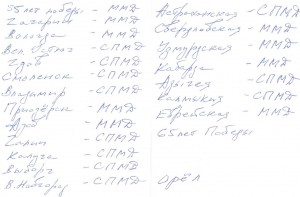 55 лет победы - ММД
Гагарин - ММД
Вологда - ММД
Вел. Устюг - СПМД
Гдов - СПМД
Смоленск - СПМД
Владимир - СПМД
Приозерск - ММД
Азов - ММД
Галич - СПМД
Калуга - СПМД
Выборг - СПМД
В. Новгород - СПМД
Астраханская - СПМД
Свердловская - СПМД
Удмуртская - ММД
Кабарда - ММД
Адыгея - ММД
Калмыкия - СПМД
Еврейская - ММД
65 лет Победы
Орёл